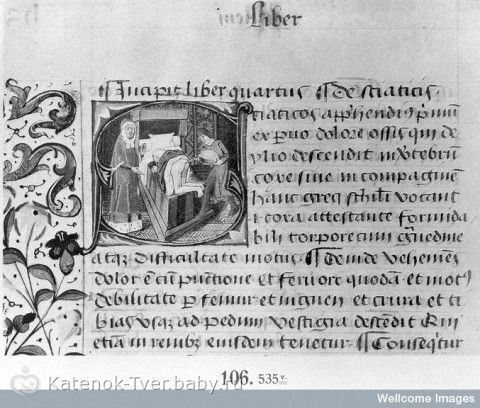 Liber
Incipit liber quartus De sciaticis.
ciaticos
ex puo dolore ossis qui de
ylio descendit
coxe siue in compaginem
hanc greci vocant
attestante formida
bili torpore cum
atq difficultate motus. Deinde vehemes
dolor e cum punctione et feruore quodam et mot
debilitate p femur et inguen et crura et ti
bias usq ad pedum vestigia descendit Qui
etiam in renibz eiusdem tenetur. Conseqtur
106. 535v.
Katenok-Tver.baby.ru
Wellcome Images